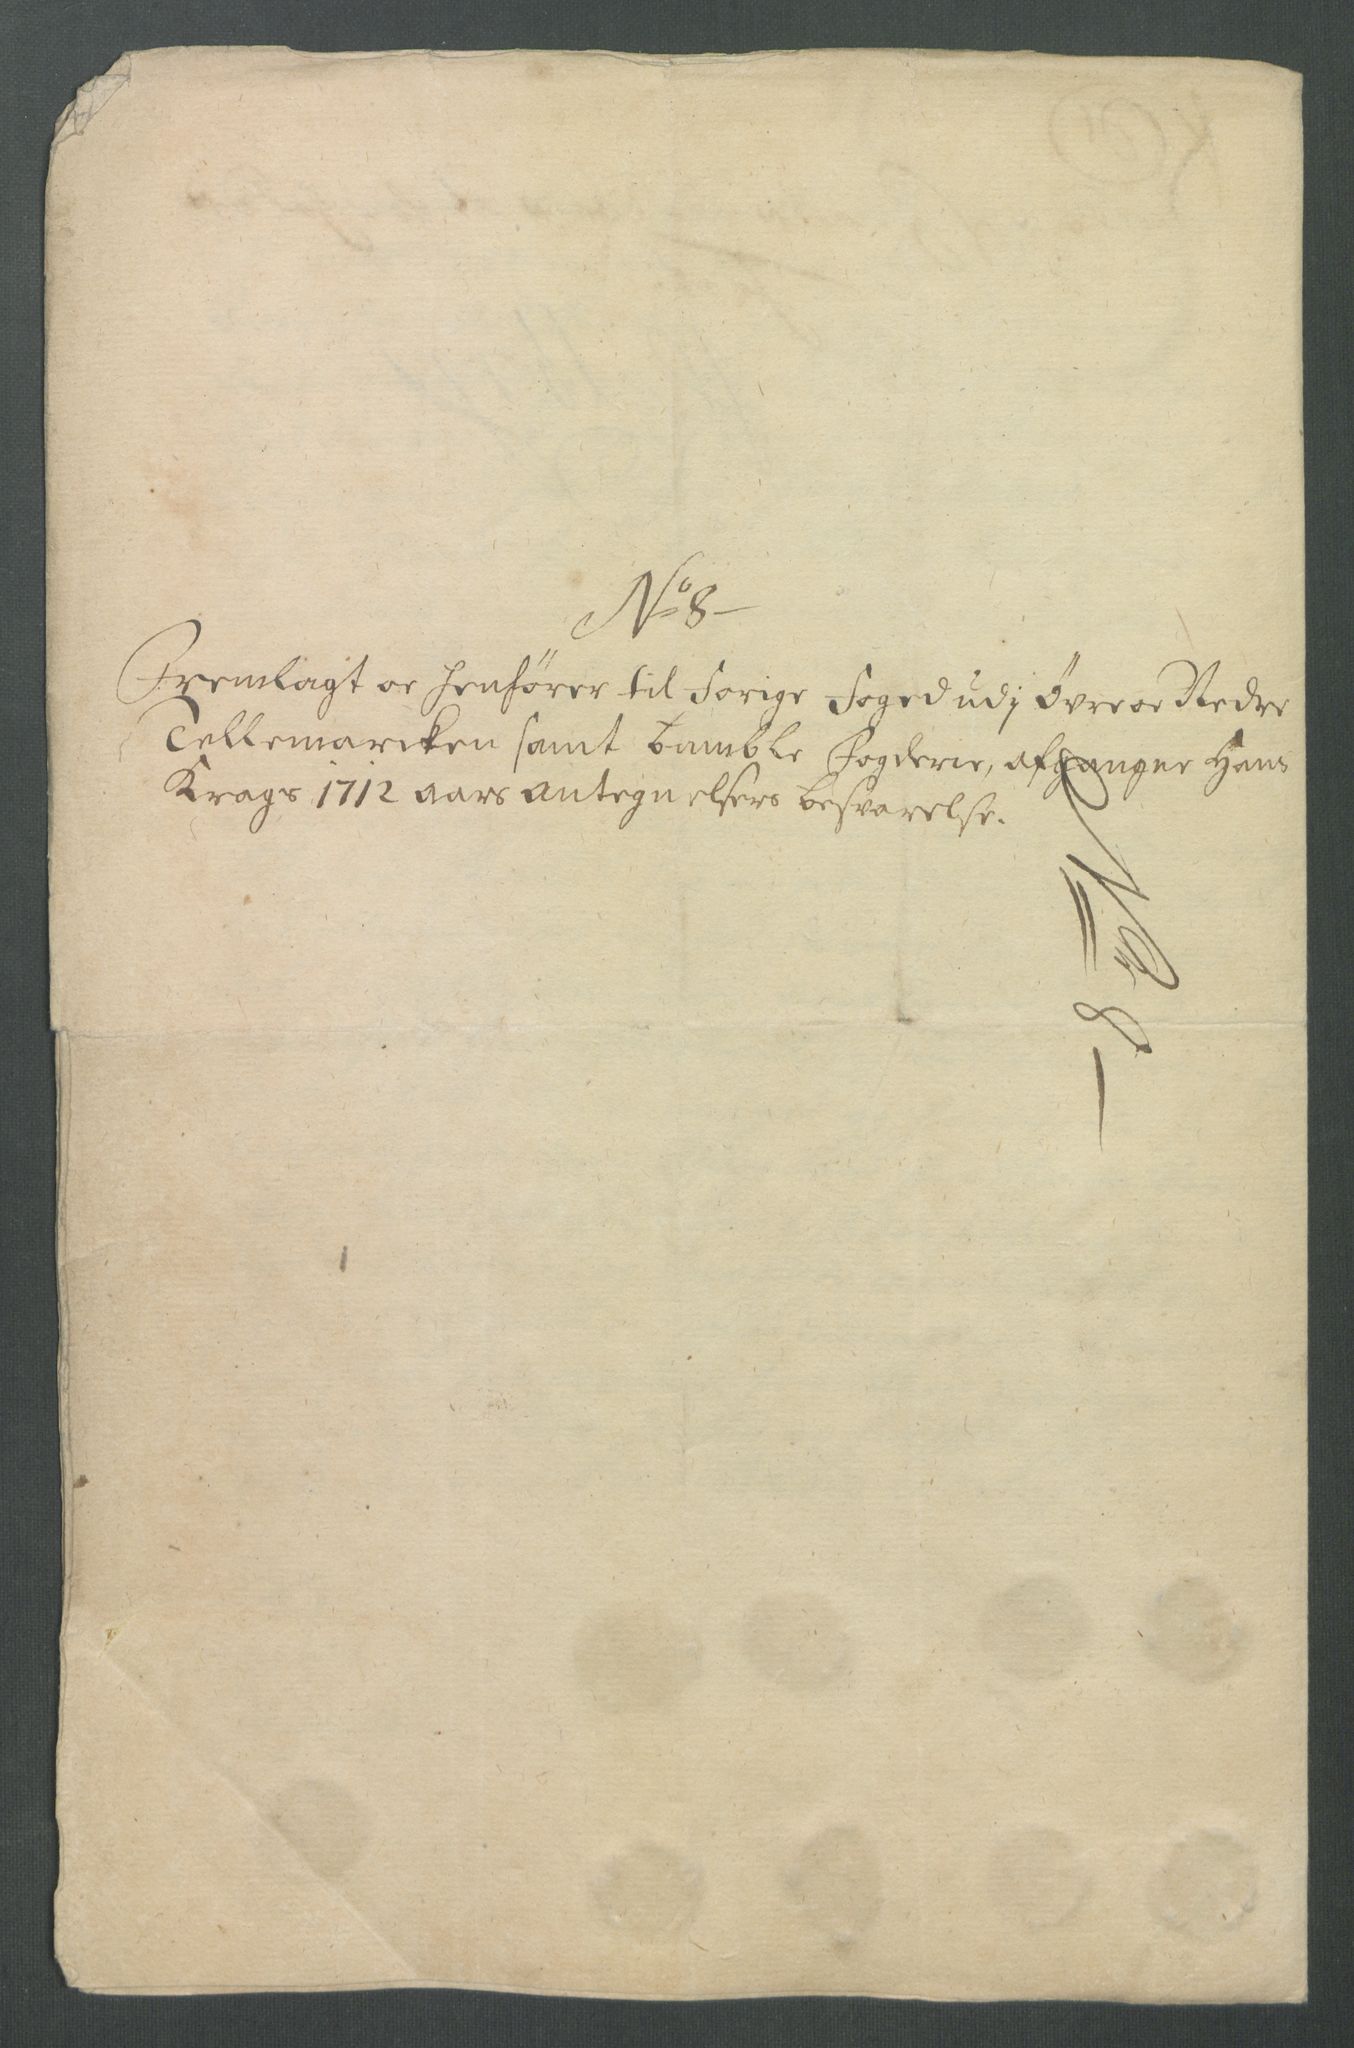 No 8
Fremlagt oc henfører til Forige Foged udj Øvre oc Nedre
Tellemarcken samt bamble Fogderie, afgangne Hans
Krags 1712 aars Antegnelsers besvarelse.
No 8